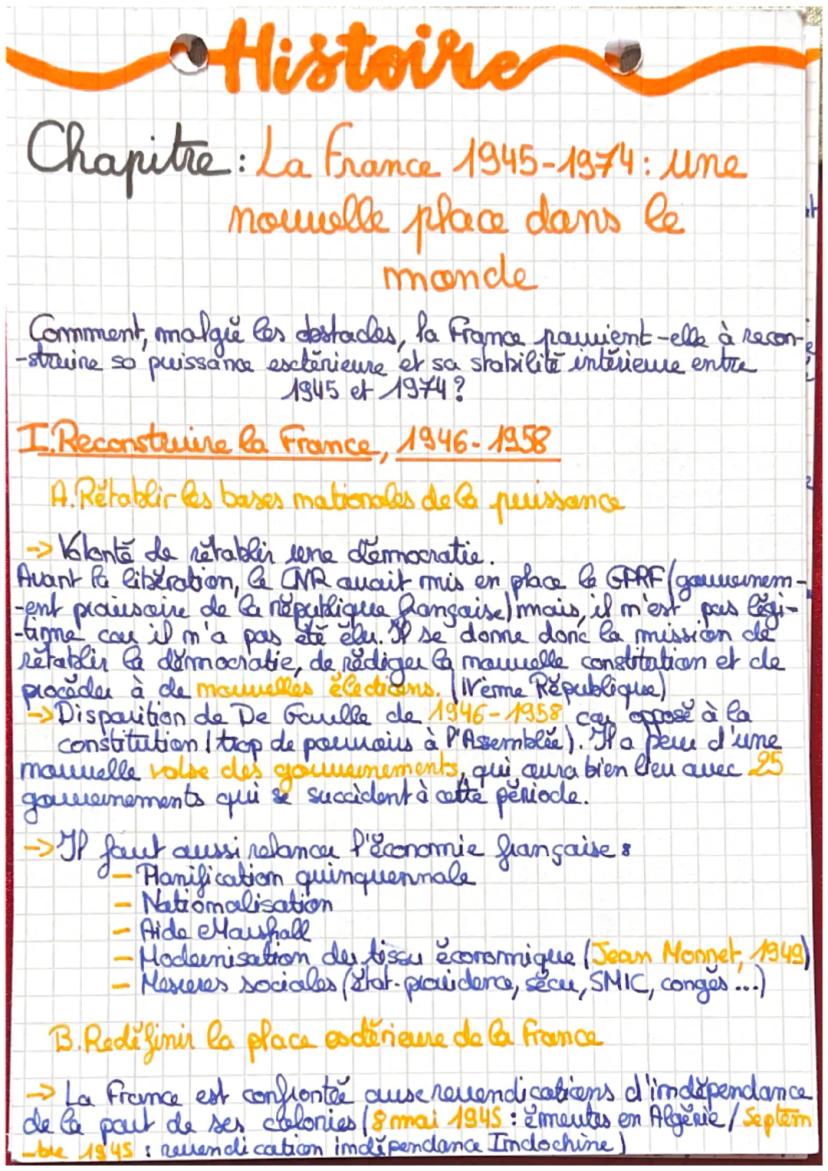 Histoire
Chapitre : La France 1945-1974 : une
nouvelle place dans le
monde
Comment, malgré les obstacles, la France parvient-elle à recon-
-struire sa puissance extérieure et sa stabilité intérieure entre
1945 et 1974 ?
I. Reconstruire la France, 1946-1958
A. Rétablir les bases nationales de la puissance
-> Volonté de rétablir une démocratie.
Avant la libération, le CNR avait mis en place le GPRF (gouvernem-
-ent provisoire de la république française) mais, il n'est pas légi-
-time car il n'a pas été élu. Il se donne donc la mission de
rétablir la démocratie, de rédiger la nouvelle constitution et de
procéder à de nouvelles élections. (IVème République)
-> Disparition de De Gaulle de 1946-1958 car opposé à la
constitution (trop de pouvoirs à l'Assemblée). Il a peur d'une
nouvelle valse des gouvernements, qui aura bien lieu avec 25
gouvernements qui se succèdent à cette période.
-> Il faut aussi relancer l'économie française :
- Planification quinquennale
- Nationalisation
- Aide Marshall
- Modernisation du tissu économique (Jean Monnet, 1949)
- Mesures sociales (état-providence, sécu, SMIC, congés ...)
B. Redéfinir la place extérieure de la France
-> La France est confrontée aux revendications d'indépendance
de la part de ses colonies (8 mai 1945 : émeutes en Algérie / Septem
-bre 1945 : revendication indépendance Indochine)